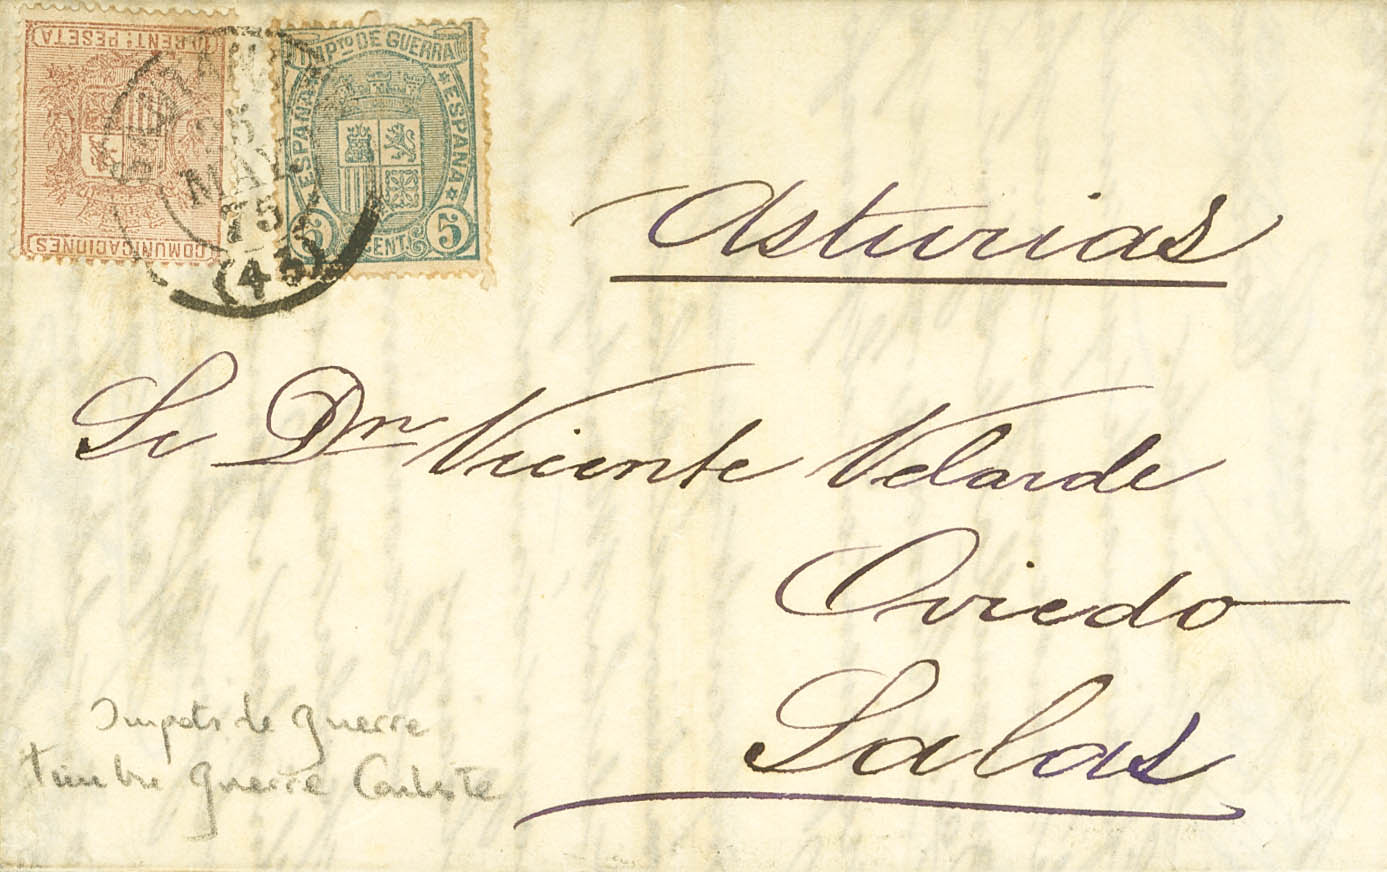 10 CENT: PESETA
COMUNICACIONES
IMPTO DE GUERRA
ESPAÑA
ESPAÑA
5 CENT. 5
MAY
75
(43)
Asturias
Sr Dn Vicente Velarde
Oviedo
Salas
Impots de guerre
timbre guerre Carliste